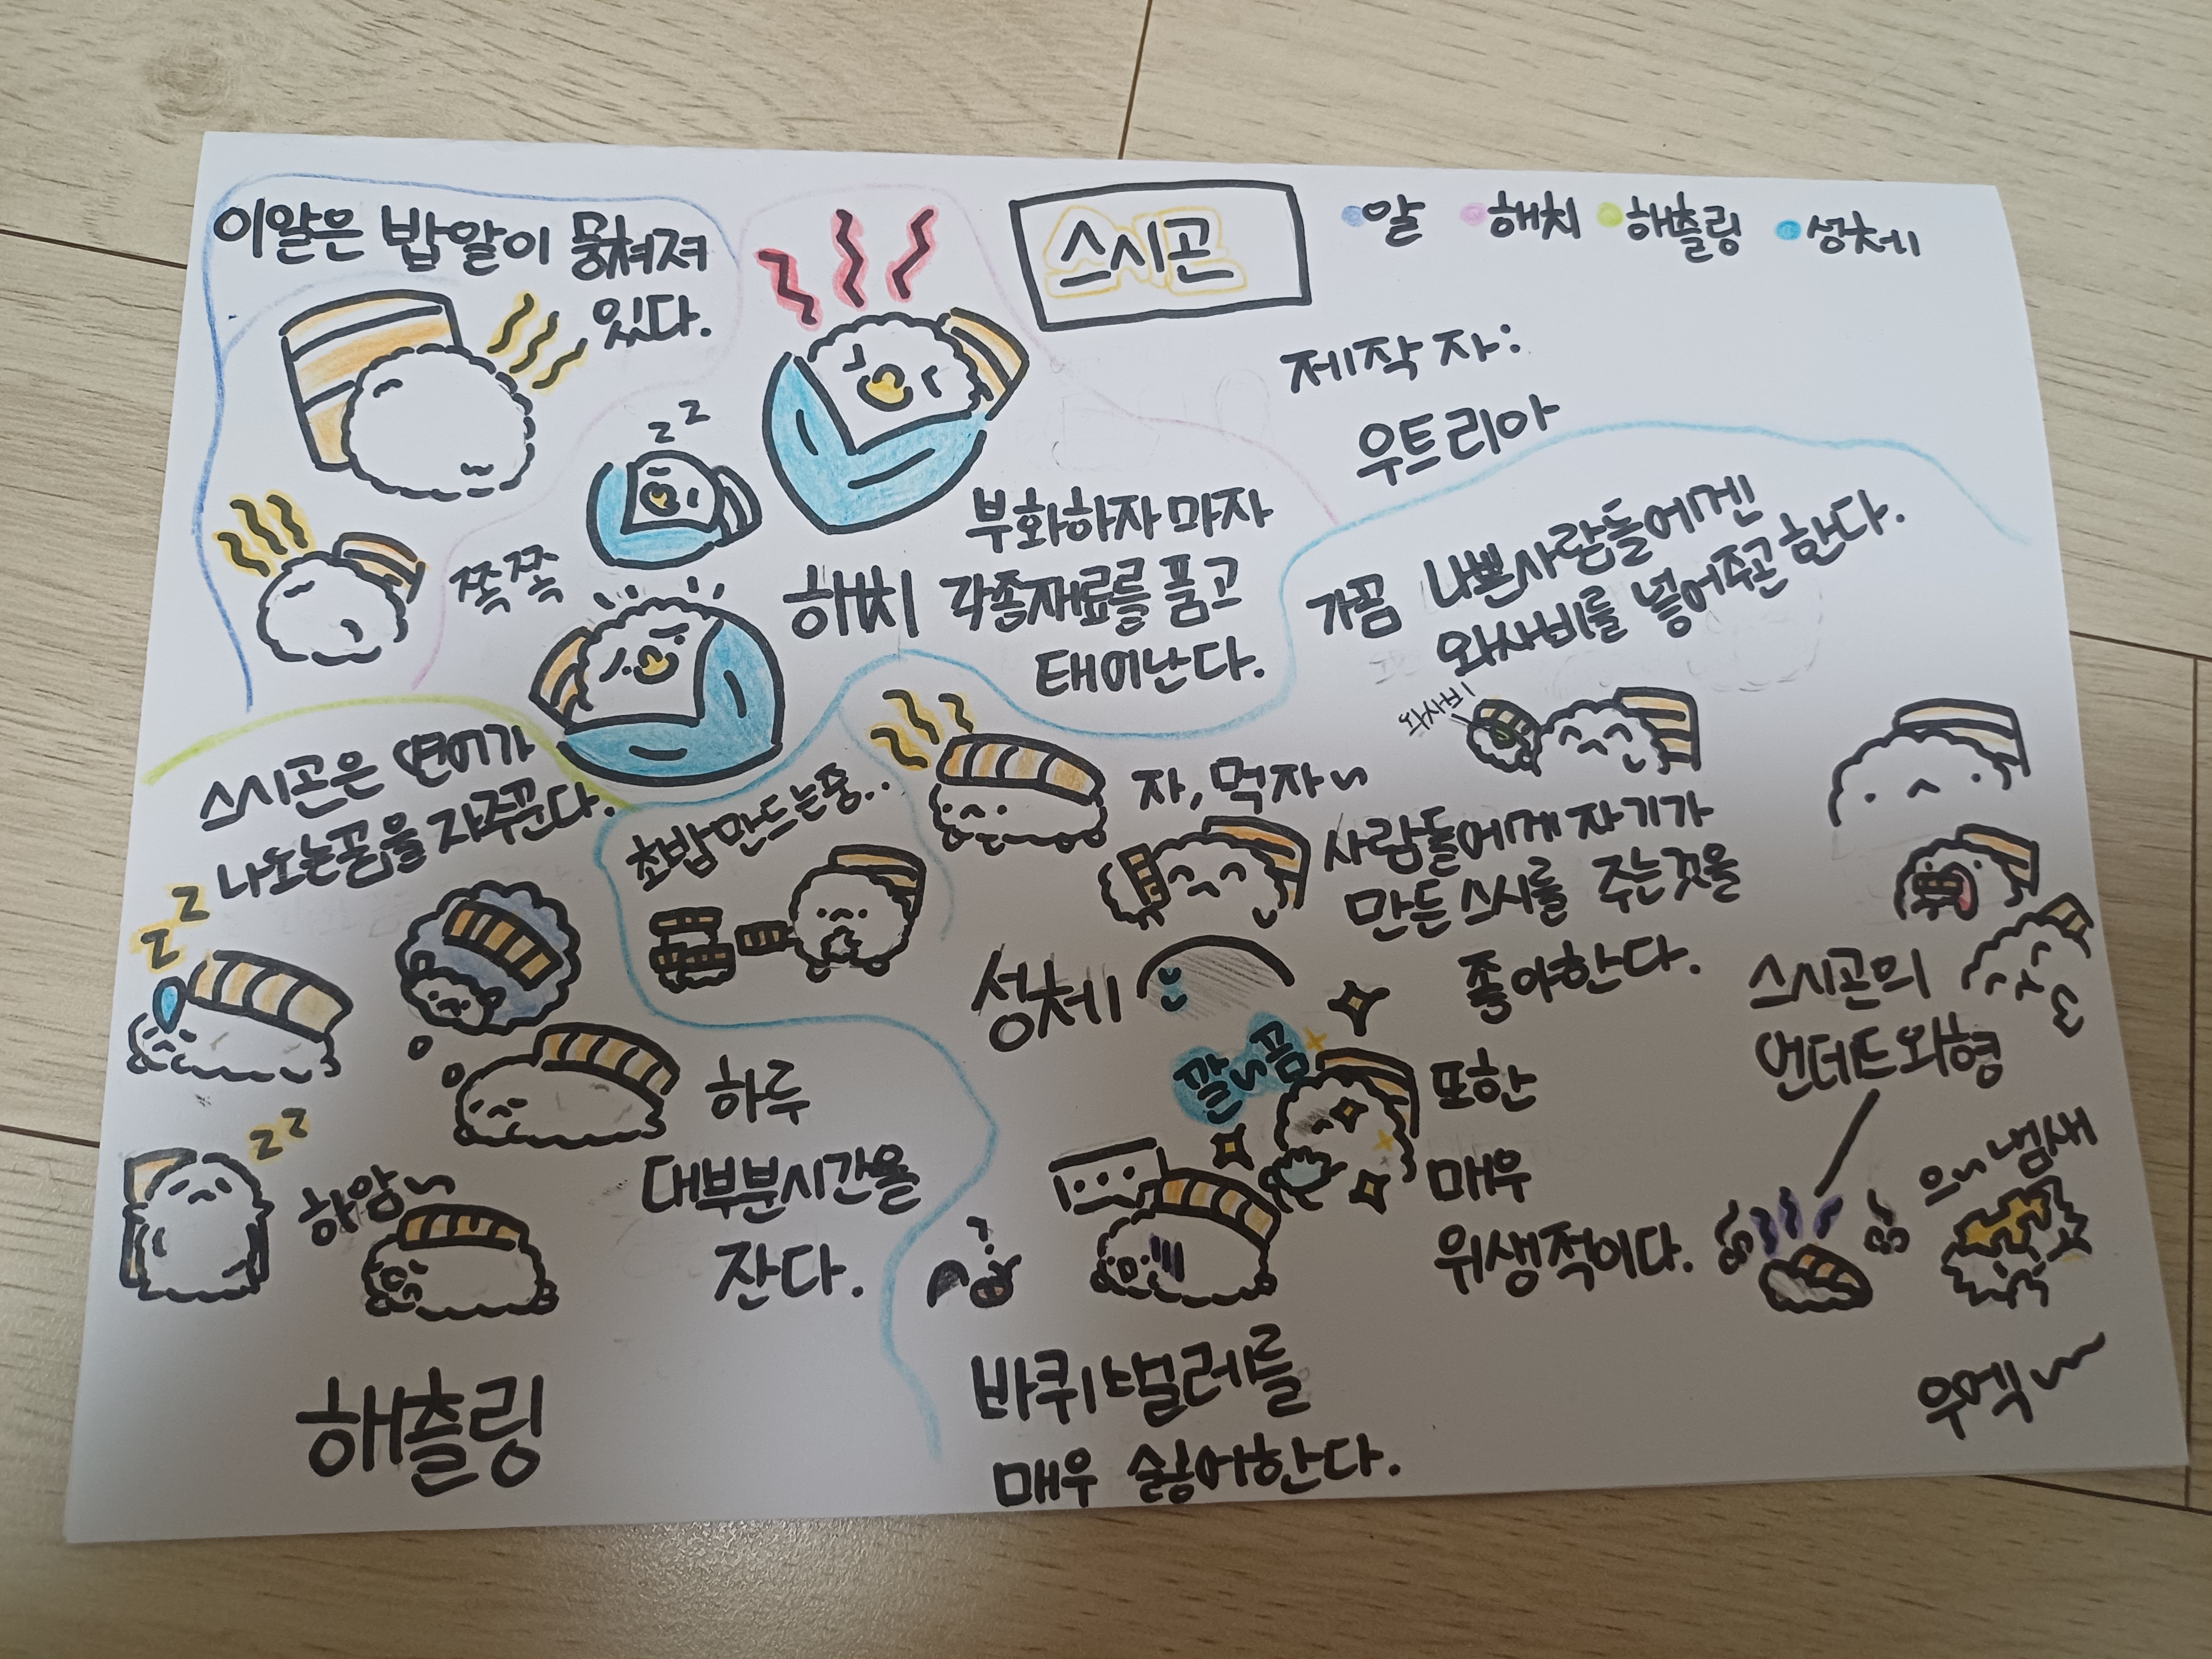 스시곤
알 해치 해츨링 성체
제작자:
우트리아
이알은 밥알이 뭉쳐져
있다.
z z
쪽쪽
부화하자마자
해치 각종재료를 품고
태어난다.
가끔 나쁜사람들에겐
와사비를 넣어주곤한다.
와사비
스시곤은 연어가
나오는꿈을 자주꾼다.
z
z
초밥만드는중..
자, 먹자~
사람들에게 자기가
만든 스시를 주는것을
좋아한다.
성체
깔~끔
또한
매우
위생적이다.
스시곤의
언데드와형
으~냄새
우엑~
하루
대부분시간을
잔다.
z z
하암~
해츨링
?
...
바퀴벌레를
매우 싫어한다.